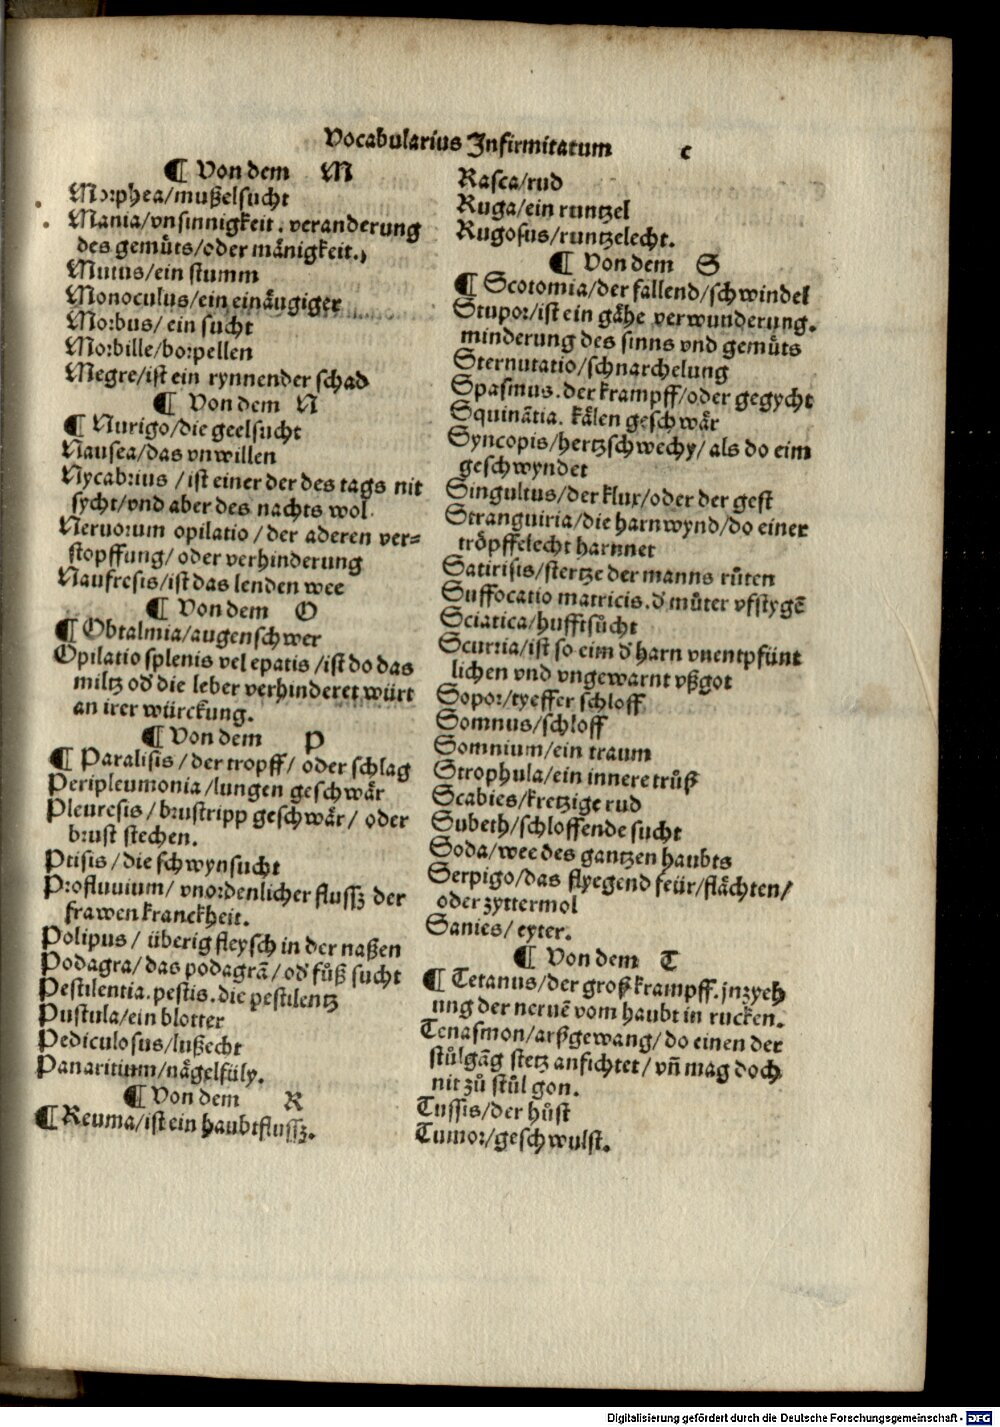 Vocabularius Infirmitatum c
¶ Von dem M
Morphea/mußelsucht
Mania/vnsinnigkeit. veranderung
des gemuͤts/oder maͤnigkeit.
Mutus/ein stumm
Monoculus/ein einaͤugiger
Morbus/ ein sucht
Morbille/borpellen
Megre/ist ein rynnender schad
¶ Von dem N
¶ Nurigo/die geelsucht
Nausea/das vnwillen
Nycabrius /ist einer der des tags nit
sycht/vnd aber des nachts wol.
Neruorum opilatio /der aderen ver=
stopffung/ oder verhinderung
Naufresis/ist das lenden wee
¶ Von dem O
¶ Obtalmia/augenschwer
Opilatio splenis vel epatis /ist do das
miltz od' die leber verhinderet würt
an irer würckung.
¶ Von dem P
¶ Paralisis /der tropff/ oder schlag
Peripleumonia /lungen geschwaͤr
Pleuresis / brustripp geschwaͤr/ oder
brust stechen.
Ptisis /die schwynsucht
Profluuium/ vnordenlicher flussz der
frawen kranckheit.
Polipus/ überig fleysch in der naßen
Podagra/das podagrā/ od' fuͦß sucht
Pestilentia.pestis.die pestilentz
Pustula/ein blotter
Pediculosus/lußecht
Panaritium/naͤgelfüly.
¶ Von dem R
¶ Reuma/ist ein haubtflussz.
Rasca/rud
Ruga/ein runtzel
Rugosus/runtzelecht.
¶ Von dem S
¶ Scotomia/der fallend/schwindel
Stupor/ist ein gaͤhe verwunderung.
minderung des sinns vnd gemuͤts
Sternutatio/schnarchelung
Spasmus.der krampff/oder gegycht
Squinātia. kaͤlen geschwaͤr
Syncopis/hertzschwechy/ als do eim
geschwyndet
Singultus/der klux/oder der gest
Stranguiria/die harnwynd/do einer
troͤpffelecht harnnet
Satirisis/stertze der manns ruͦten
Suffocatio matricis.d' muͦter vfstygē
Sciatica/hufftsuͤcht
Scurria/ist so eim d' harn vnentpfünt
lichen vnd vngewarnt vßgot
Sopor/tyeffer schloff
Somnus/schloff
Somnium/ein traum
Strophula/ein innere truͤß
Scabies/kretzige rud
Subeth/schloffende sucht
Soda/wee des gantzen haubts
Serpigo/das flyegend feür/flaͤchten/
oder zyttermol
Sanies/ eyter.
¶ Von dem T
¶ Tetanus/der groß krampff.jnzyeh
ung der neruē vom haubt in rucken.
Tenasmon/arßgewang/do einen der
stuͦlgāg stetz anfichtet/ vn̄ mag doch
nit zuͦ stuͦl gon.
Tussis/der huͦst
Tumor/geschwulst.
Digitalisierung gefördert durch die Deutsche Forschungsgemeinschaft - DFG